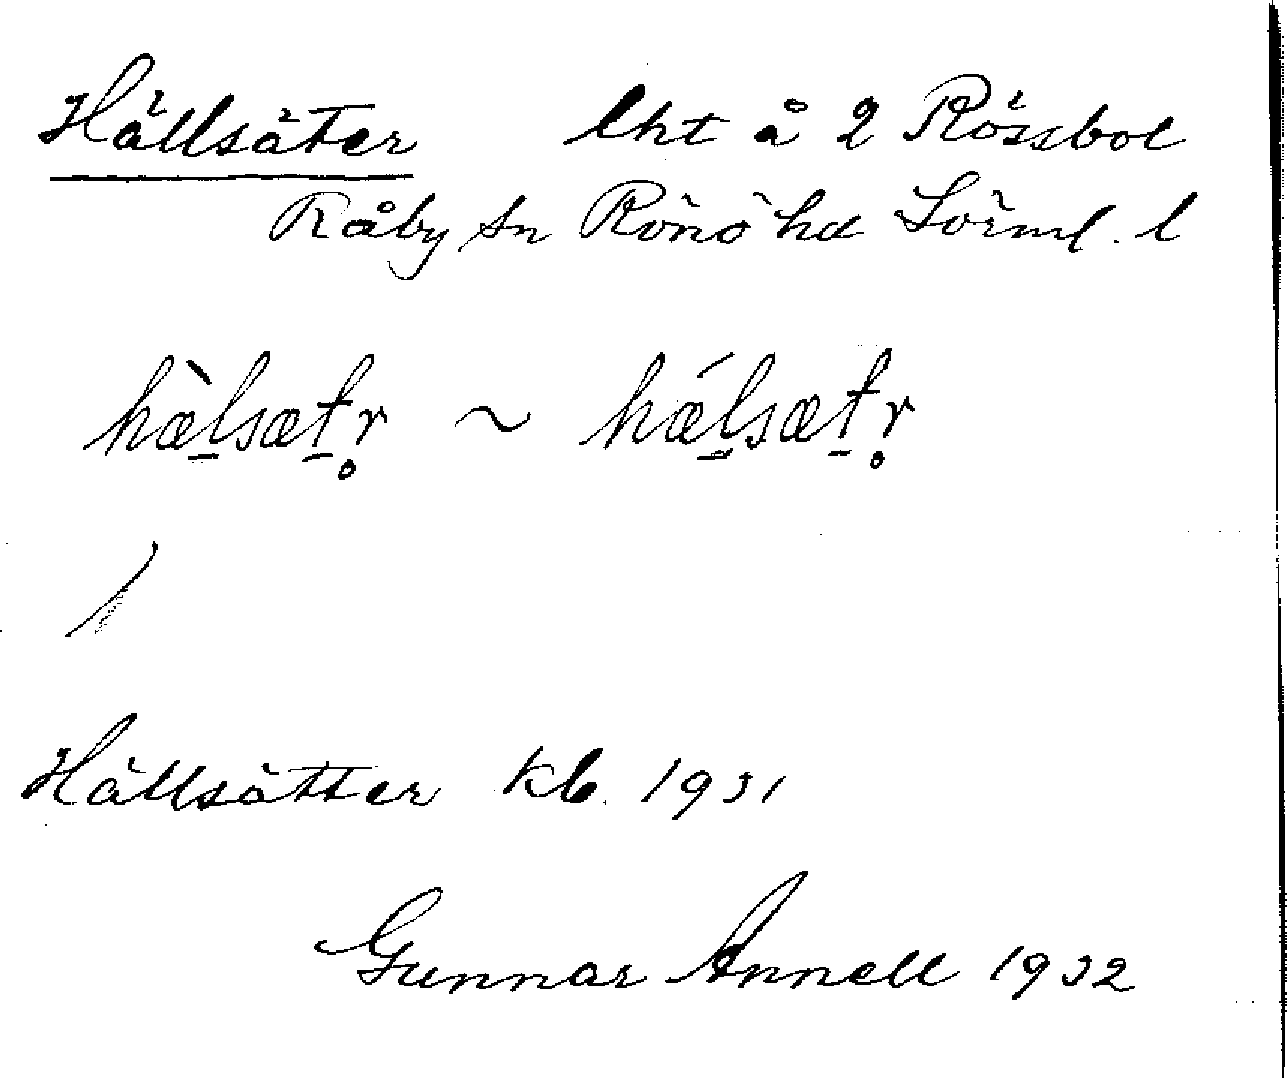 Hällsäter lht å 2 Rössbol
Råby sn Rönö hd Sörml. l
hæ̀l̠sæt̠r̥ ~ hǽl̠sæt̠r̥
Hällsätter kb. 1931
Gunnar Annell 1932